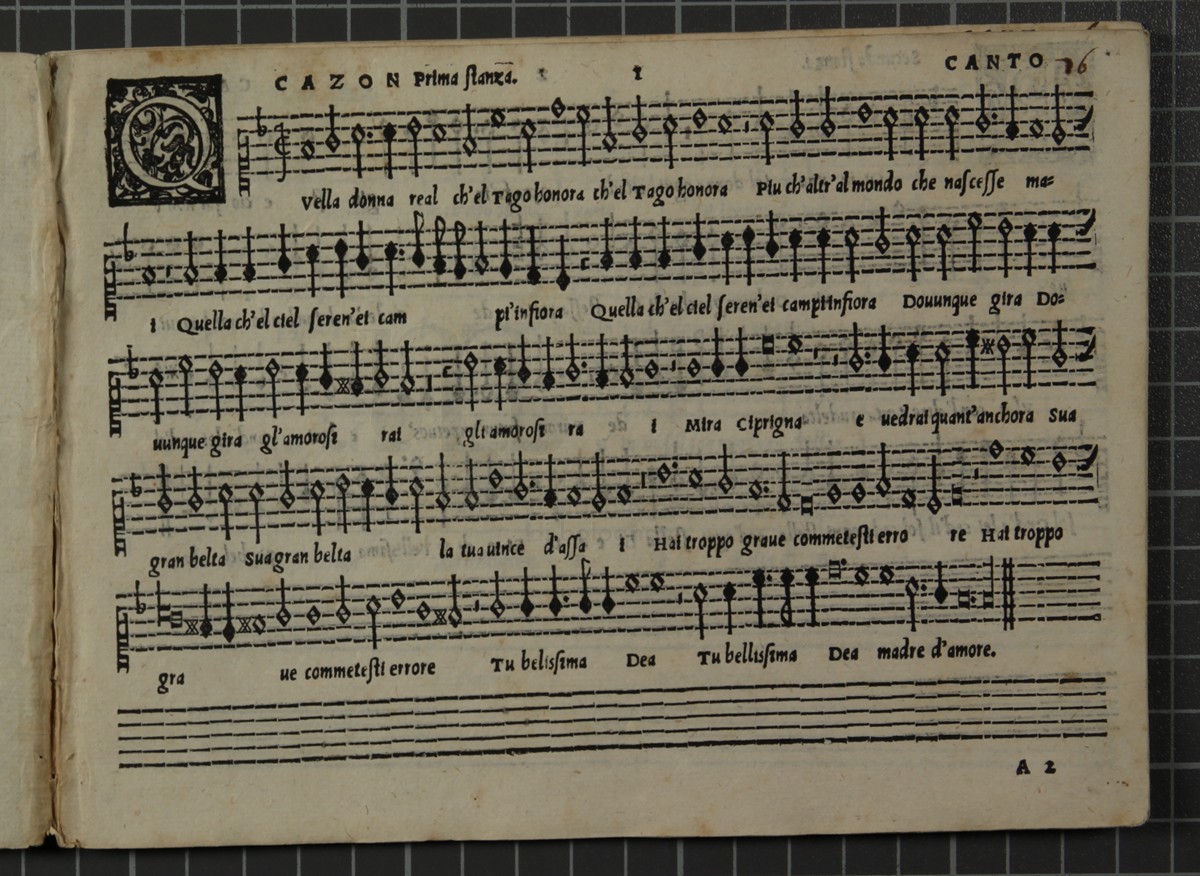 CAZON Prima stanza. 1 CANTO 76
QVella donna real ch'el Tago honora ch'el Tago honora Piu ch'altr'al mondo che nascesse ma=
i Quella ch'el ciel seren'ei cam pi'infiora Quella ch'el ciel seren'ei campiinfiora Douunque gira Do=
uunque gira gl'amorosi rai gli amorosi ra i Mira Ciprigna e uedrai quant'anchora Sua
gran belta Sua gran belta la tua uince d'assa i Hai troppo graue commetesti erro re Hai troppo
gra ue commetesti errore Tu belissima Dea Tu bellissima Dea madre d'amore.
A 2